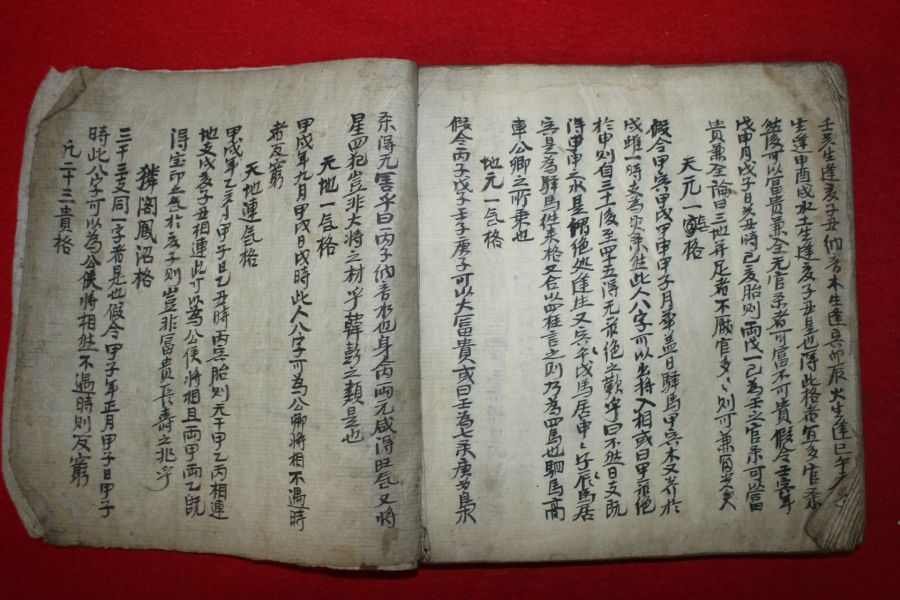 壬癸生逢亥子丑納音木生逢寅卯辰火生逢巳午
生逢申酉戌水土生逢亥子丑是也得此格者宜多官柔
然後可以富貴兼全无官柔者可富不可貴假令壬
戊申月戊子日癸丑時己亥胎則兩戊一己為壬之官柔可以富
貴兼全論曰三地并足者不厭官多〻則可兼
天元一氣格
假令甲寅甲戌甲申甲子月華盖日驛馬甲寅木又
戌雖一時支為 此人八字可以出將入相或曰甲 絕
於申則自三十後至四十五得无 絕之歎乎曰不然日支既
得申申之水是謂絕処逢生又寅午戌馬居申〻子辰馬居
寅是為驛馬 格又合以四柱言之則乃為四馬也駟馬高
車公卿之所乘也
地元一氣格
假令丙子戊子壬子庚子可以大富貴或曰壬為七柔庚為
柔得无害乎曰丙子納音水也身丙兩元咸得旺氣又將
星四犯豈非大將之材乎韓彭之類是也
天地一氣格
甲戌年九月甲戌日戌時此人八字可為公卿將相不遇時
者反窮
天地連氣格
甲戌年乙亥 甲子日乙丑時丙寅胎則天干甲乙丙相連
地支戌亥子丑相連此可以為公侯將相且兩甲兩乙既
得宝印之氣於亥子則豈非富貴長壽之兆乎
獜閣鳳沼格
三干三支同一字者是也假令甲子年正月甲子日甲子
時此八字可以為公侯將相然不遇時則反窮
凡二十三貴格